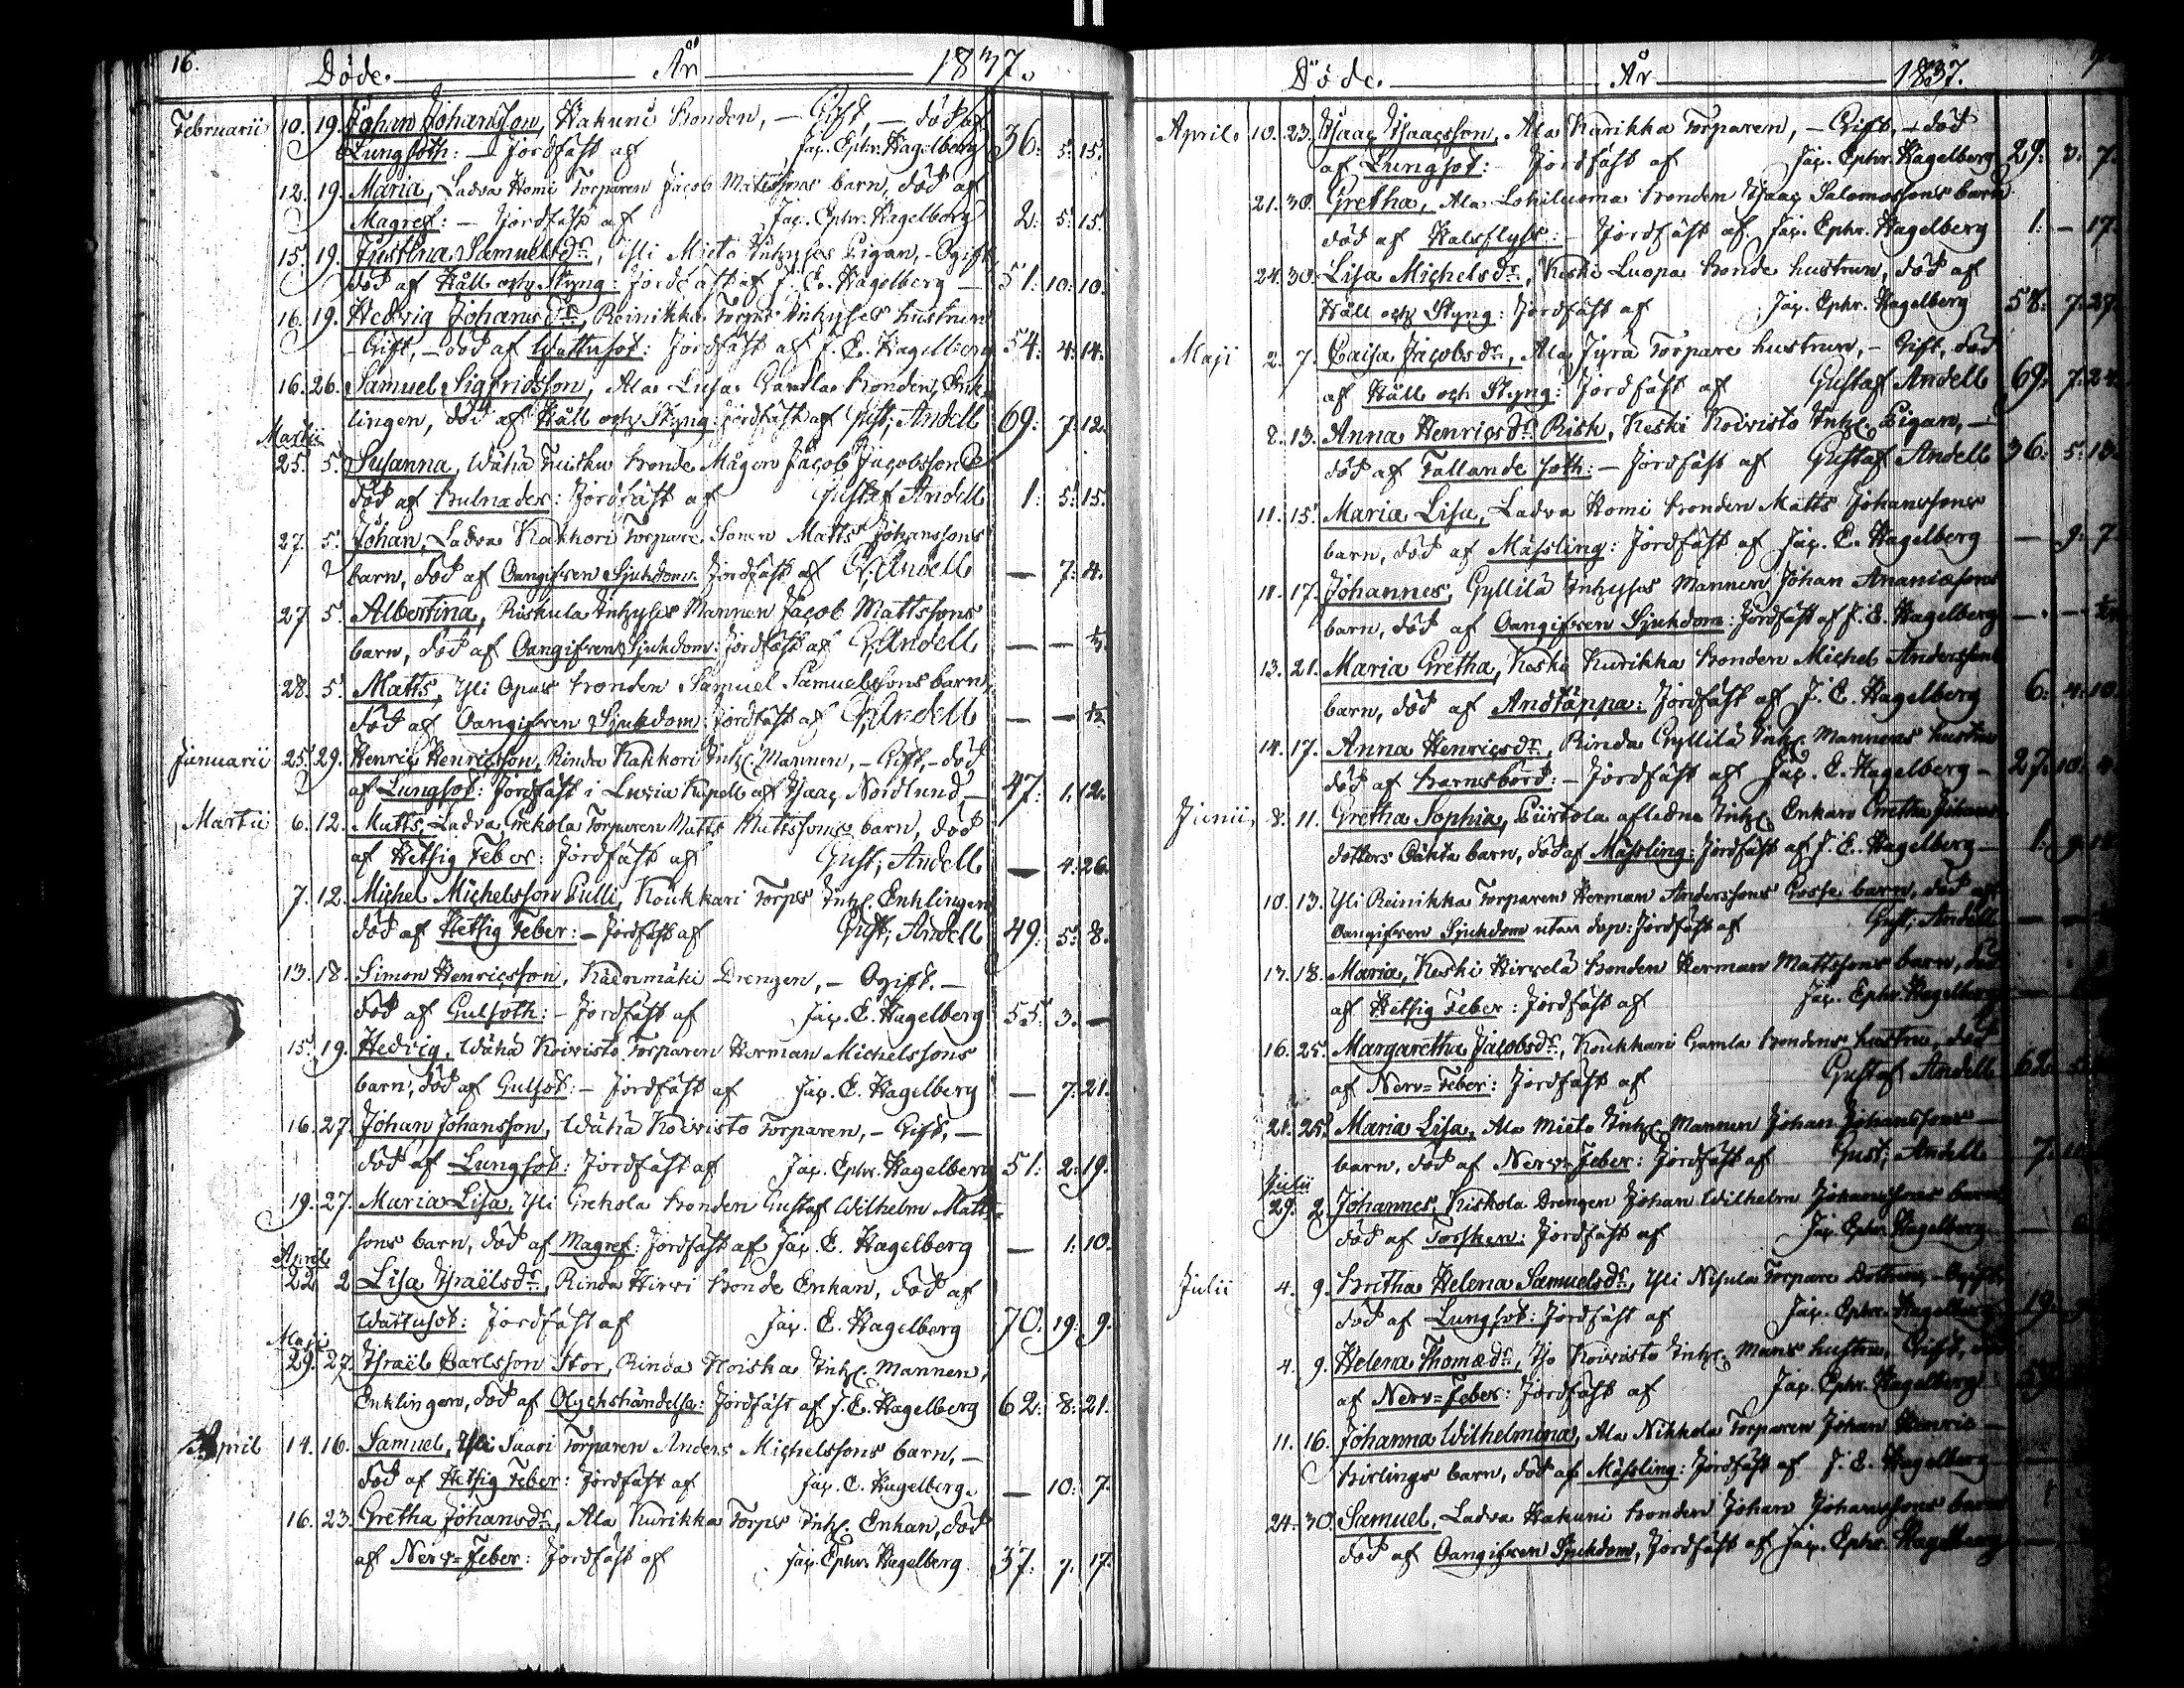 16.
Döde. År 1837.
Februarii 10. 19. Johan Johansson, Hakuni Bonden, – Gift, – död af
Lungsoth: – Jordfäst af Jac. Ephr. Hagelberg 36: 5: 15.
12. 19. Maria, Ladva Homi Torparen Jacob Mattssons barn, död af
Magref: – Jordfäst af Jac. Ephr. Hagelberg 2: 5: 15.
15. 19. Justina Samuelsdr, Yli Mieto Inhyses Pigan, – Ogift,
död af Håll och Styng: Jordfäst af J. E. Hagelberg – 51: 10: 10.
16. 19. Hedvig Johansdr, Reinikka Torps Inhyses hustrun
– Gift, – död af Wattusot: Jordfäst af J. E. Hagelberg 54: 4: 14.
16. 26. Samuel Sigfridsson, Ala Lusa Gamla Bonden, Enk-
lingen, död af Håll och Styng: Jordfäst af Gust; Andell 69: 7: 12.
Martii
25. 5. Susanna, Wähä Bonde Mågen Jacob Jacobsson
död af Bulnader: Jordfäst af Gustaf Andell 1: 5: 15.
27. 5. Johan, Ladva Kakkori Torpare Sonen Matts Johanssons
barn, död af Oangifven Sjukdom: Jordfäst af G. Andell — 7: 4.
27 5. Albertina, Riskula Inhyses Mannen Jacob Mattssons
barn, död af Oangifven Sjukdom: Jordfäst af G. Andell — —
28. 5. Matts, Yli Opas Bonden Samuel Samuelssons barn,
död af Oangifven Sjukdom: Jordfäst af G. Andell — — 1/2
Januarii 25. 29. Henric Henricsson, Rinda Kakkori Inh. Mannen, – Gift, – död
af Lungsot: Jordfäst i Kapell af Isaac Nordlund, – 47: 1: 12.
Martii 6. 12. Matts, Ladva Grekola Torparen Matts Mattssons barn, död
af Hetsig Feber: Jordfäst af Gust; Andell — 4: 26.
7. 12. Michel Michelsson Pulli, Koukkari Torps Inh. Enklingen
död af Hetsig Feber: – Jordfäst af Gust; Andell 49: 5: 8.
13. 18. Simon Henricsson, Käenmäki Drengen, – Ogift. –
död af Gulsoth: – Jordfäst af Jac. E. Hagelberg 55: 3. —
15. 19. Hedvig, Wähä Koivisto Torparen Herman Michelssons
barn; död af Gulsot: – Jordfäst af Jac. E. Hagelberg — 7: 21.
16. 27. Johan Johansson, Wähä Koivisto Torparen, – Gift, –
död af Lungsot: Jordfäst af Jac. Ephr. Hagelberg 51: 2: 19.
19. 27. Maria Lisa, Yli Grekola Bonden Gustaf Wilhelm Matts-
sons barn, död af Magref: Jordfäst af Jac. E. Hagelberg — 1: 10.
April
22 2 Lisa Israëlsdr, Rinda Hirvi Bonde Enkan, död af
Wattusot: Jordfäst af Jac. E. Hagelberg 70: 19: 9.
Maji
29. 27. Israël Carlsson Stor, Rinda Hoiska Inh. Mannen,
Enklingen, död af Olyckshändelse: Jordfäst af J. E. Hagelberg 62: 8: 21.
April 14. 16. Samuel, Yli Saari Torparen Anders Michelssons barn, –
död af Hetsig Feber: Jordfäst af Jac. E. Hagelberg. — 10: 7.
16. 23. Gretha Johansdr, Ala Kurikka Torps Inh. Enkan, död
af Nerv-Feber: Jordfäst af Jac. Ephr. Hagelberg. 37: 7: 17.
Döde. År 1837.
April 10. 23. Isaac Isaacsson, Ala Kurikka Torparen, – Gift, – död
af Lungsot: – Jordfäst af Jac. Ephr. Hagelberg 29: 3: 7.
21. 30. Gretha, Ala Lohiluoma Bonden Isaac Salomossons barn
död af Halsflyss: – Jordfäst af Jac. Ephr. Hagelberg 1: – 17.
24. 30. Lisa Michelsdr, Keski Luopa Bonde hustrun, död af
Håll och Styng: Jordfäst af Jac. Ephr. Hagelberg 58: 7: 27.
Maji 2. 7. Caisa Jacobsdr, Ala Jyrä Torpare hustrun, – Gift, död
af Håll och Styng: Jordfäst af Gustaf Andell 69: 7: 24.
8. 13. Anna Henricsdr Risk, Keski Koivisto Inh. Pigan, –
död af Fallande soth: – Jordfäst af Gustaf Andell 36: 5: 13.
11. 15. Maria Lisa, Ladva Homi Bonden Matts Johanssons
barn, död af Mässling: Jordfäst af Jac. E. Hagelberg — 9: 7.
11. 17. Johannes, Gyllilä Inhyses Mannen Johan Ananiæsons
barn, död af Oangifven Sjukdom: Jordfäst af J. E. Hagelberg —
13. 21. Maria Gretha, Keski Kurikka Bonden Michel Anderssons
barn, död af Andtäppa: Jordfäst af J. E. Hagelberg 6: 4: 10.
14. 17. Anna Henricsdr, Rinda Gyllilä Inh. Mannens hustru
död af Barnsbörd: – Jordfäst af Jac. E. Hagelberg – 27: 10: 4
Junii, 8. 11. Gretha Sophia, Piirtola aflidna Inh. Enkans Gretha Johans
dotters Oäkta barn, död af Mässling: Jordfäst af J. E. Hagelberg – 1: 9:
10. 13. Yli Reinikka Torparen Herman Anderssons Gosse barn, död af
Oangifven Sjukdom utan dop: Jordfäst af Gust; Andell —
17. 18. Maria, Keski Hirvelä Bonden Herman Mattssons barn, död
af Hetsig Feber: Jordfäst af Jac. Ephr. Hagelberg —
16. 25. Margaretha Jacobsdr, Koukkari Gamla Bondens hustru, död
af Nerv-Feber: Jordfäst af Gustaf Andell 62:
21. 25. Maria Lisa, Ala Mieto Inh. Mannen Johan Johanssons –
barn, död af Nerv-Feber: Jordfäst af Gust; Andell 7:
Julii
29. 2. Johannes, Kiskola Drengen Johan Wilhelm Johanssons barn
död af Torsken: Jordfäst af Jac. Ephr. Hagelberg
Julii 4. 9. Britha Helena Samuelsdr, Yli Nisula Torpare Dottren, – Ogift,
död af Lungsot: Jordfäst af Jac. Ephr. Hagelberg 19:
4. 9. Helena Thomædr, Iso Koivisto Inh. Mans hustru, Gift,
af Nerv-Feber: Jordfäst af Jac. Ephr. Hagelberg
11. 16. Johanna Wilhelmina, Ala Nikkola Torparen Johan Henric –
Birlings barn, död af Mässling: Jordfäst af J. E. Hagelberg
24. 30. Samuel, Ladva Hakuni Bonden Johan Johanssons barn
död af Oangifven Sjukdom, Jordfäst af Jac. Ephr. Hagelberg